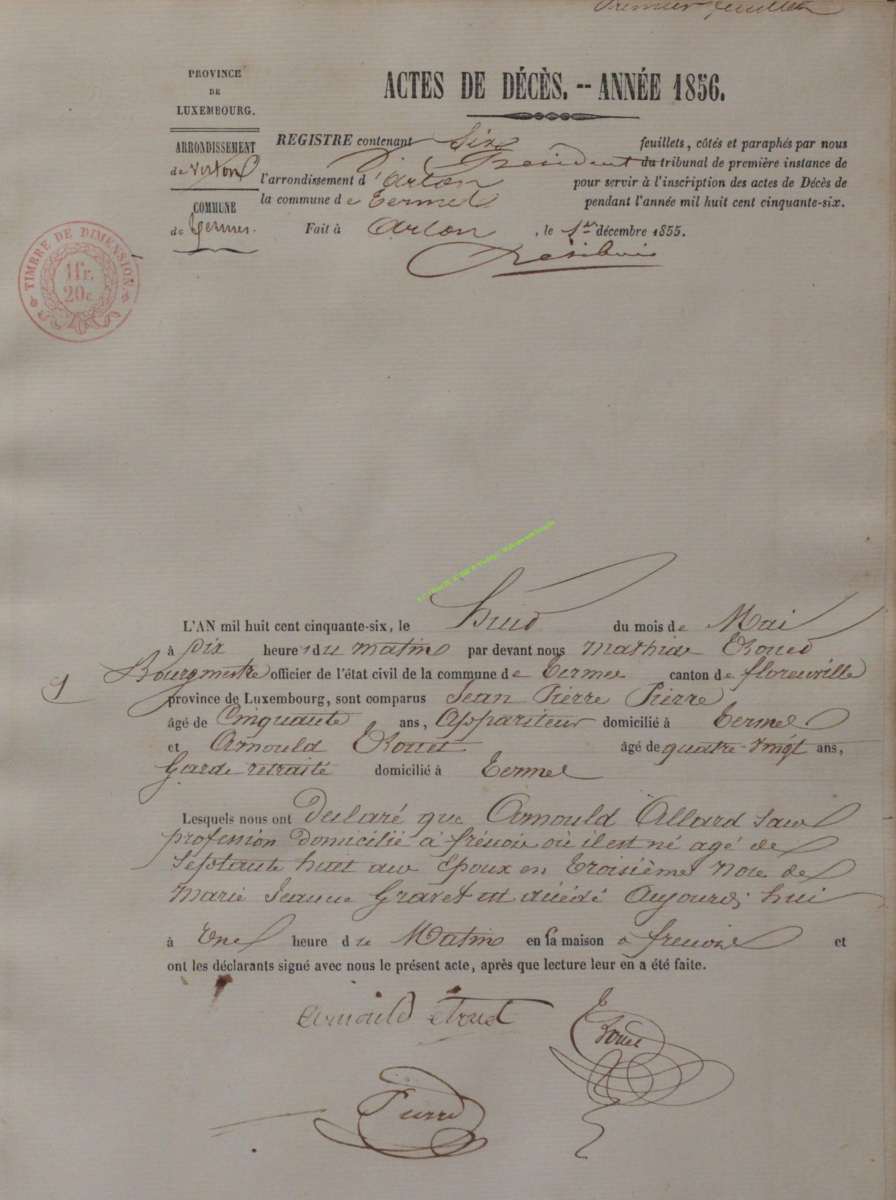 Premier feuillet
PROVINCE
DE
LUXEMBOURG.
ARRONDISSEMENT
de Virton
COMMUNE
de Termes.
ACTES DE DÉCÈS. -- ANNÉE 1856.
REGISTRE contenant Six feuillets, côtés et paraphés par nous
Président du tribunal de première instance de
l'arrondissement d'Arlon pour servir à l'inscription des actes de Décès de
la commune de Termes pendant l'année mil huit cent cinquante-six.
Fait à Arlon, le 1er décembre 1855.
TIMBRE DE DIMENSION
1 fr.
20 c
L'AN mil huit cent cinquante-six, le huit du mois de Mai
à Dix heures du matin par devant nous
Bourgmestre officier de l'état civil de la commune de Termes canton de florenville
1
province de Luxembourg, sont comparus Jean Pierre Pierre
âgé de Cinquante ans, Appariteur domicilié à Termes
et Arnould âgé de quatre-vingt ans,
Garde retraité domicilié à Termes
Lesquels nous ont Declaré que Arnould Allard sans
profession domicilié à frénois où il est né agé de
Septante huit ans Epoux en Troisième Noce de
Marie Jeanne Gravet est décédé Aujourd'hui
à Une heure du Matin en la maison à frenois et
ont les déclarants signé avec nous le présent acte, après que lecture leur en a été faite.
Arnould
Pierre